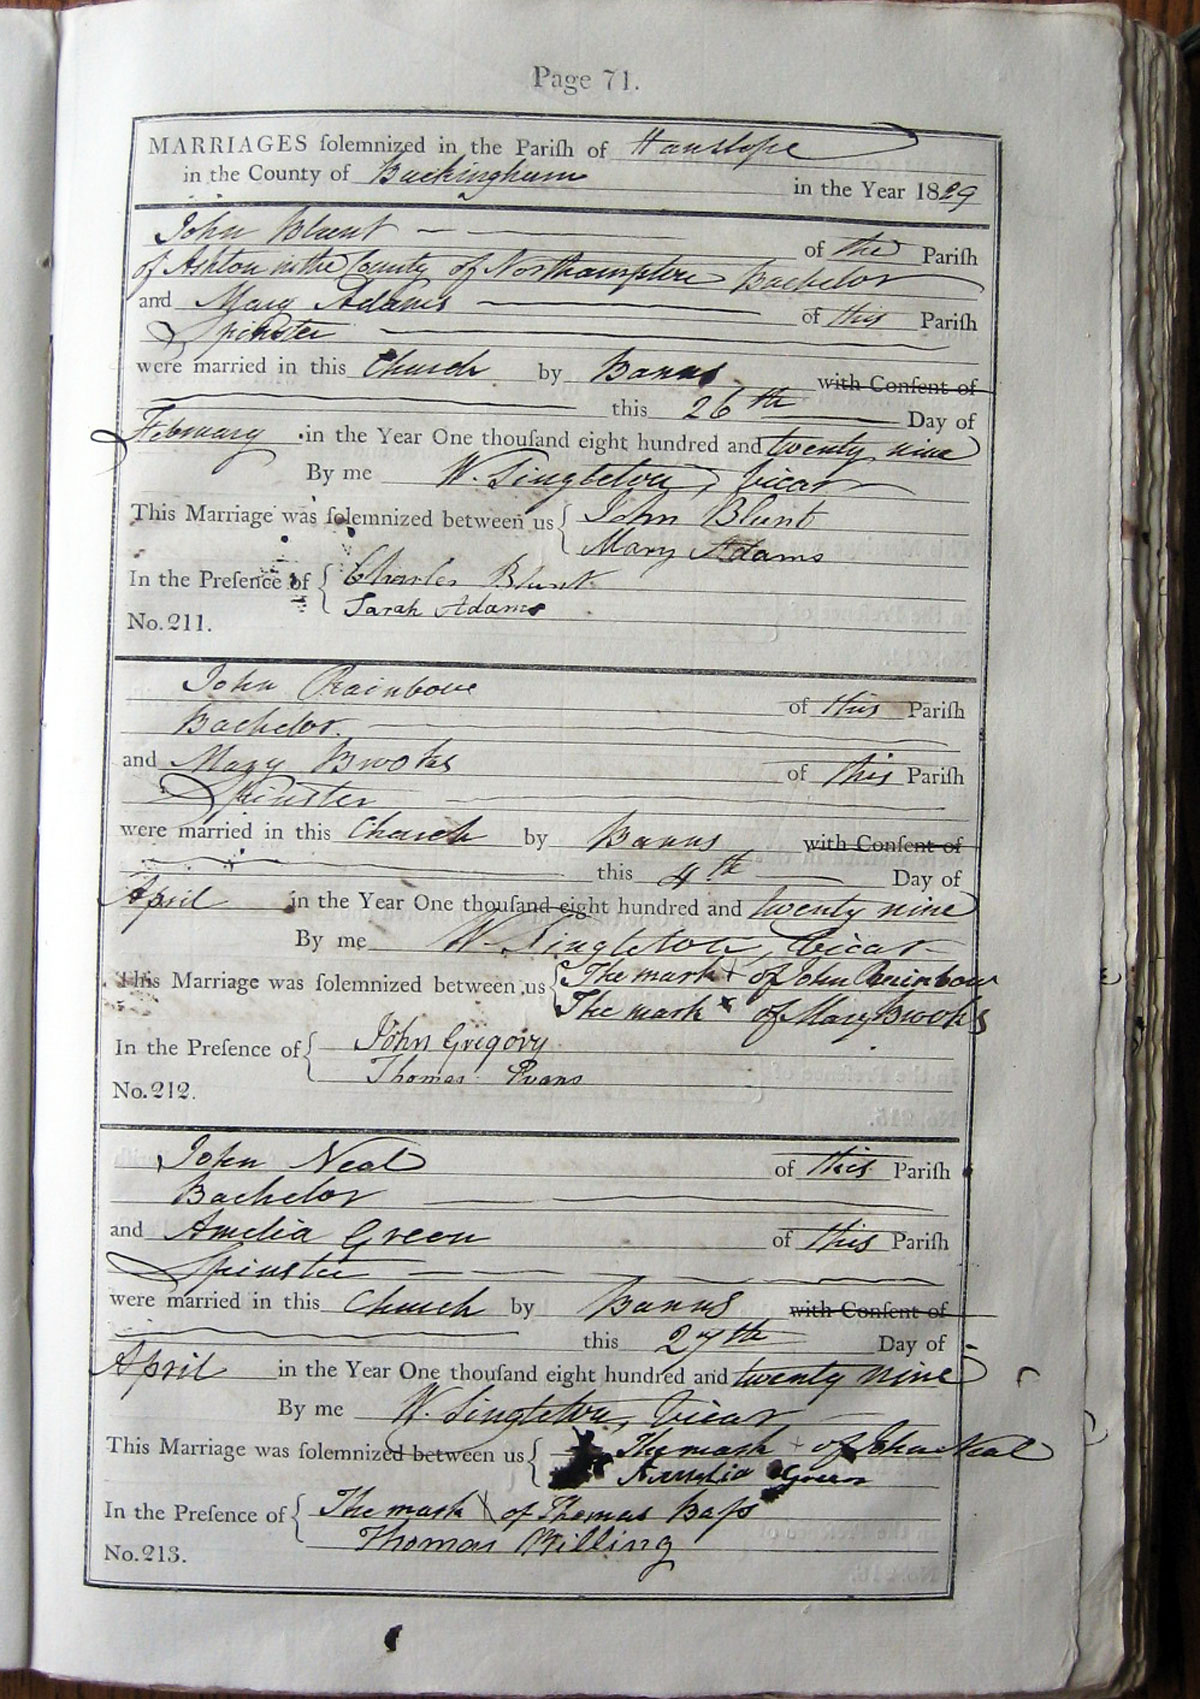 Page 71.
MARRIAGES ſolemnized in the Pariſh of Hanslope
in the County of Buckingham in the Year 1829
John Blunt of the Pariſh
of Ashton in the County of Northampton Bachelor
and Mary Adams of this Pariſh
Spinster
were married in this Church by Banns with Conſent of
this 26th Day of
February in the Year One thouſand eight hundred and twenty nine
By me W. Singleton, Vicar
This Marriage was ſolemnized between us { John Blunt
Mary Adams
In the Preſence of { Charles Blunt
Sarah Adams
No. 211.
John Rainbow of this Pariſh
Bachelor.
and Mary Brooks of this Pariſh
Spinster
were married in this Church by Banns with Conſent of
this 4th Day of
April in the Year One thouſand eight hundred and twenty nine
By me W. Singleton, Vicar
This Marriage was ſolemnized between us { The mark + of John Rainbow
The mark x of Mary Brooks
In the Preſence of { John Gregory
Thomas Evans
No. 212.
John Neal of this Pariſh
Bachelor
and Amelia Green of this Pariſh
Spinster
were married in this Church by Banns with Conſent of
this 27th Day of
April in the Year One thouſand eight hundred and twenty nine
By me W. Singleton, Vicar
This Marriage was ſolemnized between us { The mark + of John Neal
Amelia Green
In the Preſence of { The mark X of Thomas Baſs
Thomas Billing
No. 213.